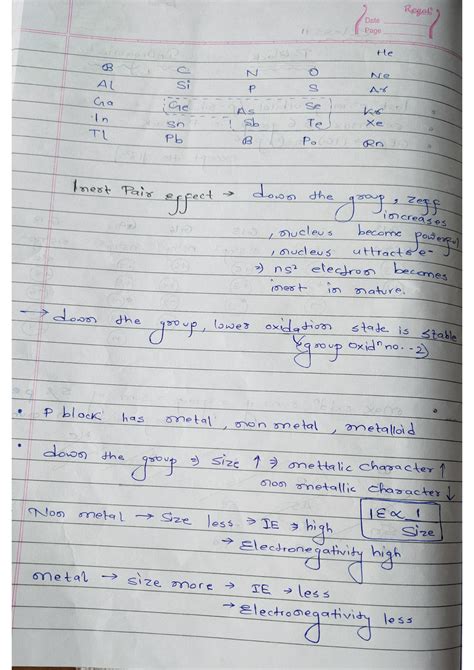 Regal
Date
Page
He
B C N O Ne
Al Si P S Ar
Ga Ge As Se Kr
In Sn Sb Te Xe
Tl Pb B Po Rn
Inert Pair effect → down the group, zeff
increases
, nucleus become powerful
, nucleus attracts e-
⇒ ns² electron becomes
inert in nature.
→ down the group, lower oxidation state is stable
(group oxidⁿ no. -2)
• P block has metal, non metal, metalloid
• down the group ⇒ size ↑ ⇒ mettalic character ↑
non metallic character ↓
Non metal → size less → IE → high IE ∝ 1/size
→ Electronegativity high
metal → size more → IE → less
→ Electronegativity less